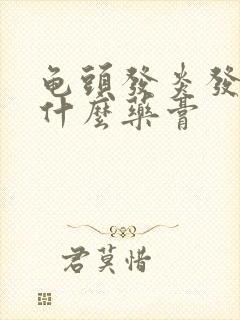 龟頭發炎發
什麼藥膏
君莫惜